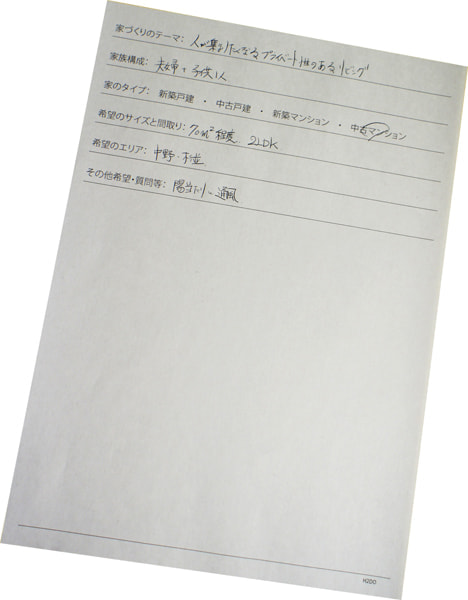 家づくりのテーマ: 人が集まりたくなるプライベート性のあるリビング
家族構成: 夫婦+子供1人
家のタイプ: 新築戸建 ・ 中古戸建 ・ 新築マンション ・ 中古マンション
希望のサイズと間取り: 70m²程度 2LDK
希望のエリア: 中野・杉並
その他希望・質問等: 陽当たり・通風
H2DO